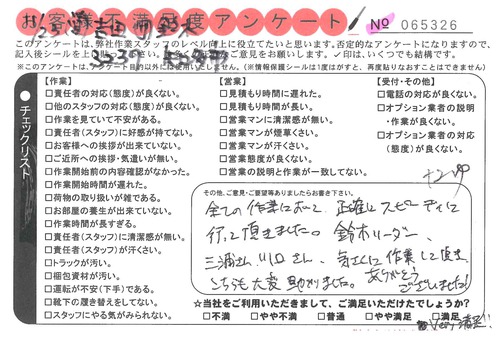 お客様満足度アンケート
No 065326
このアンケートは、弊社作業スタッフのレベル向上に役立てたいと思います。否定的なアンケートになりますので、
記入後シールを上
ご意見をお願いします。✓印は、いくつでも結構です。
※このアンケートは、アンケート目的以外には使用いたしません。(※情報保護シールは1度はがすと、再度貼りなおすことはできません)
チェックリスト
【作業】
□責任者の対応(態度)が良くない。
□他のスタッフの対応(態度)が良くない。
□作業を見ていて不安がある。
□責任者(スタッフ)に好感が持てない。
□お客様への挨拶が出来ていない。
□ご近所への挨拶・気遣いが無い。
□作業開始前の内容確認がなかった。
□作業開始時間が遅れた。
□荷物の取り扱いが雑である。
□お部屋の養生が出来ていない。
□作業時間が長すぎる。
□責任者(スタッフ)に清潔感が無い。
□責任者(スタッフ)が汗くさい。
□トラックが汚い。
□梱包資材が汚い。
□運転が不安(下手)である。
□靴下の履き替えをしてない。
□スタッフにやる気がみられない。
【営業】
□見積もり時間に遅れた。
□見積もり時間が長い。
□営業マンに清潔感が無い。
□営業マンが煙草くさい。
□営業マンが汗くさい。
□営業態度が良くない。
□営業の説明と作業が一致してない。
【受付・その他】
□電話の対応が良くない。
□オプション業者の説明
・作業が良くない。
□オプション業者の対応
(態度)が良くない。
その他、ご意見・ご要望等ありましたらお書き下さい。
全ての作業において、正確にスピーディに
行って頂きました。鈴木リーダー、
三浦さん、川口さん、気さくに作業して頂き
こちらも大変助かりました。ありがとう
ございました!
☆当社をご利用いただきまして、ご満足いただけたでしょうか?
□不満 □やや不満 □普通 □やや満足 □満足
Very 満足!!